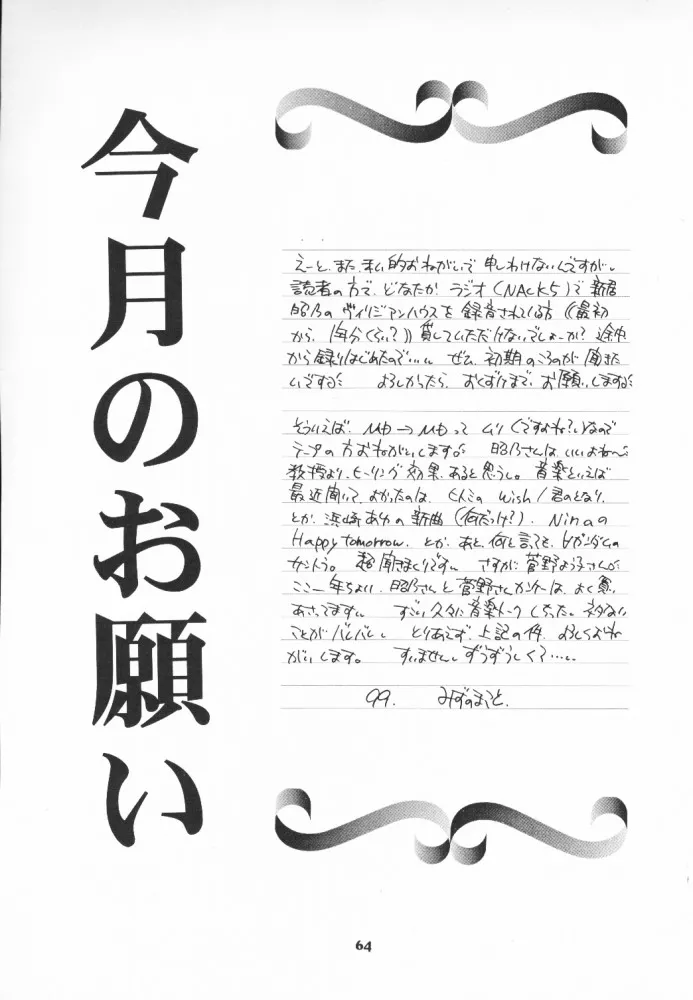 今月のお願い
えーと、また、私的おねがいで 申しわけないんですが。
読者の方で、どなたか ラジオ(NACK5)で 新居
昭乃の ヴィリジアンハウスを 録音されている方《最初
から、1年分くらい?》貸していただけないでしょーか? 途中
から録りはじめたので…。 ぜひ、初期のころのが 聞きた
いです。 よろしかったら、おくづけまで、お願いします。
そういえば、MD→MDって ムリ(ですよね?)なので
テープの方おねがいします。 昭乃さんは、いいよね〜
教授より、ヒーリング効果、あると思うし。 音楽といえば
最近聞いて、よかったのは、くんこの wish/君のとなり、
とか、浜崎あゆの新曲(何だっけ?)、Ninaの
Happy tomorrow、とか、あと、何と言っても、∀ガンダムの
サントラ。 超聞きまくりです。 さすが菅野よう子さん。
ここ一年ちょい、昭乃さんと菅野さんカンケーは、よく買い
あさってます。 すごい久々に音楽トークしちった。ネタない
ことがバレバレ。 とりあえず、上記の件、よろしくおね
がいします。 すいません。ずうずうしくて…。
99. みずのまこと.
64